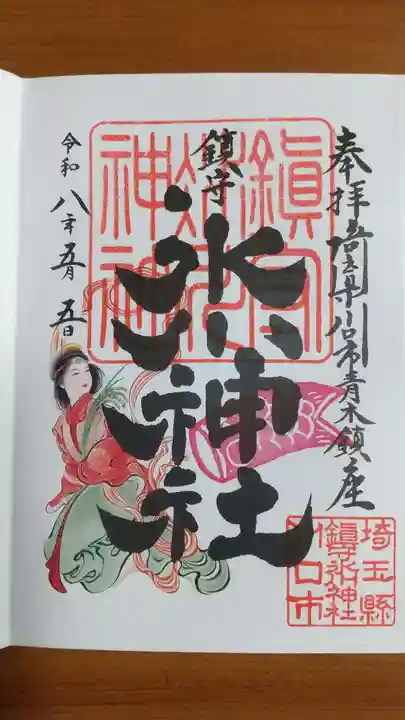 奉拝 埼玉県川口市青木鎮座
鎮守
氷川神社
令和八年五月五日
埼玉縣
鎮守氷川神社
川口市